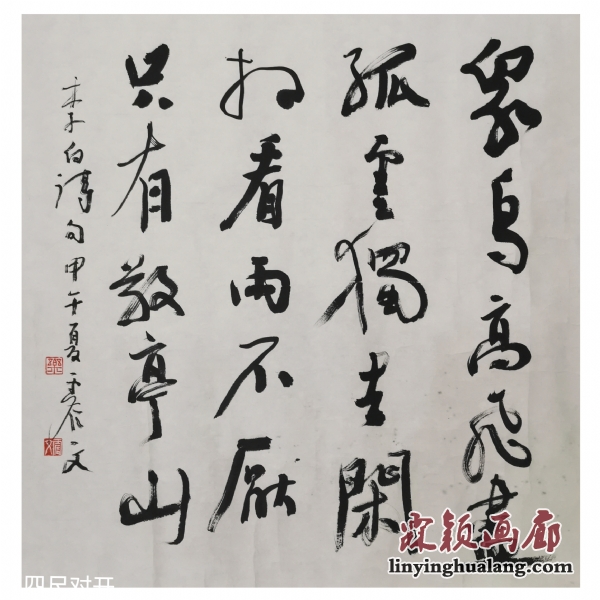 眾鳥高飛盡
孤雲獨去閑
相看兩不厭
只有敬亭山
李白詩句甲午夏
霖颖画廊
linyinghualang.com
四尺对开